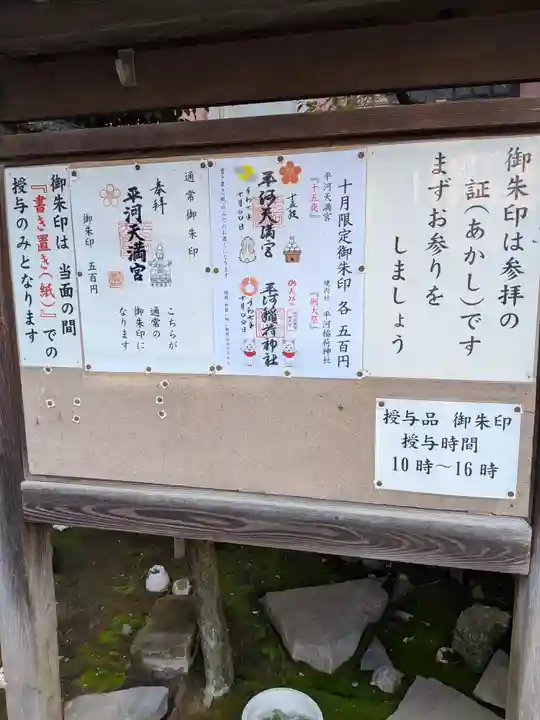 御朱印は参拝の
証(あかし)です
まずお参りを
しましょう
十月限定御朱印 各 五百円
平河天満宮
『十五夜』
境内社 平河稲荷神社
『例大祭』
十五夜
平河天満宮
平河稲荷神社
通常御朱印
奉拝
平河天満宮
御朱印 五百円
こちらが
通常の
御朱印に
なります
御朱印は 当面の間
『書き置き(紙)』での
授与のみとなります
授与品 御朱印
授与時間
10時～16時